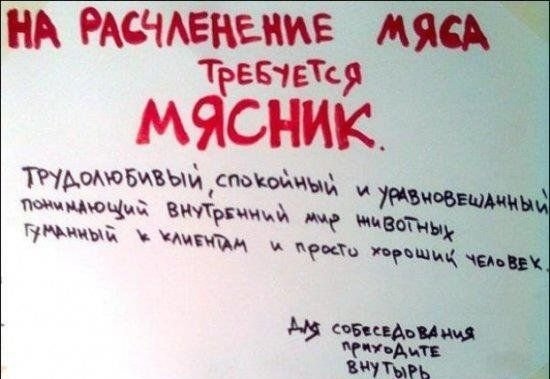 НА РАСЧЛЕНЕНИЕ МЯСА
ТРЕБУЕТСЯ
МЯСНИК.
ТРУДОЛЮБИВЫЙ, СПОКОЙНЫЙ И УРАВНОВЕШАННЫЙ
ПОНИМАЮЩИЙ ВНУТРЕННИЙ МИР ЖИВОТНЫХ
ГУМАННЫЙ К КЛИЕНТАМ И ПРОСТО ХОРОШИЙ ЧЕЛОВЕК.
ДЛЯ СОБЕСЕДОВАНИЯ
ПРИХОДИТЕ
ВНУТЫРЬ